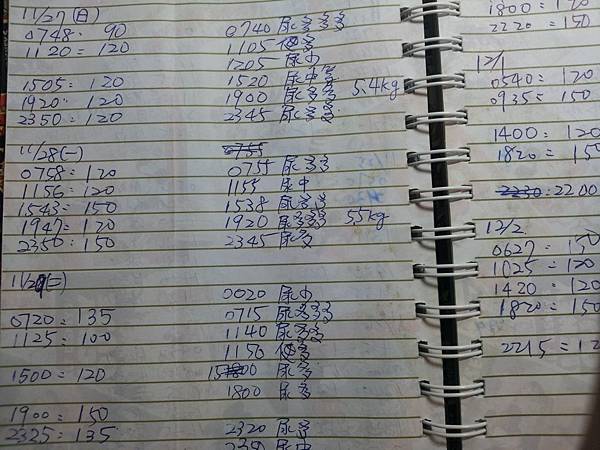 11/27(日)
0748: 90 0740 尿多多多
1120=120 1105 便多
1205 尿多
1505:120 1520 尿中多
1920:120 1900 尿多多 5.4kg
2350=120 2345 尿多多
11/28(一) 0755
0758=120 0755 尿多多
1156=120 1155 尿中
1543=150 1538 尿多多
1947=120 1920 尿多多多 5.5kg
2350=150 2345 尿多
11/29(二)
0020 尿中
0720=135 0715 尿多多多
1125=100 1140 尿多多
1150 便多
1500=120 1500 尿多
1800 尿多
1900=150
2325=135 2320 尿多
尿中
1800=
2220=150
12/1
0540=120
0935=150
1400=120
1820=150
2230:2200
12/2
0627=150
1025=120
1420=120
1820=150
2215=12